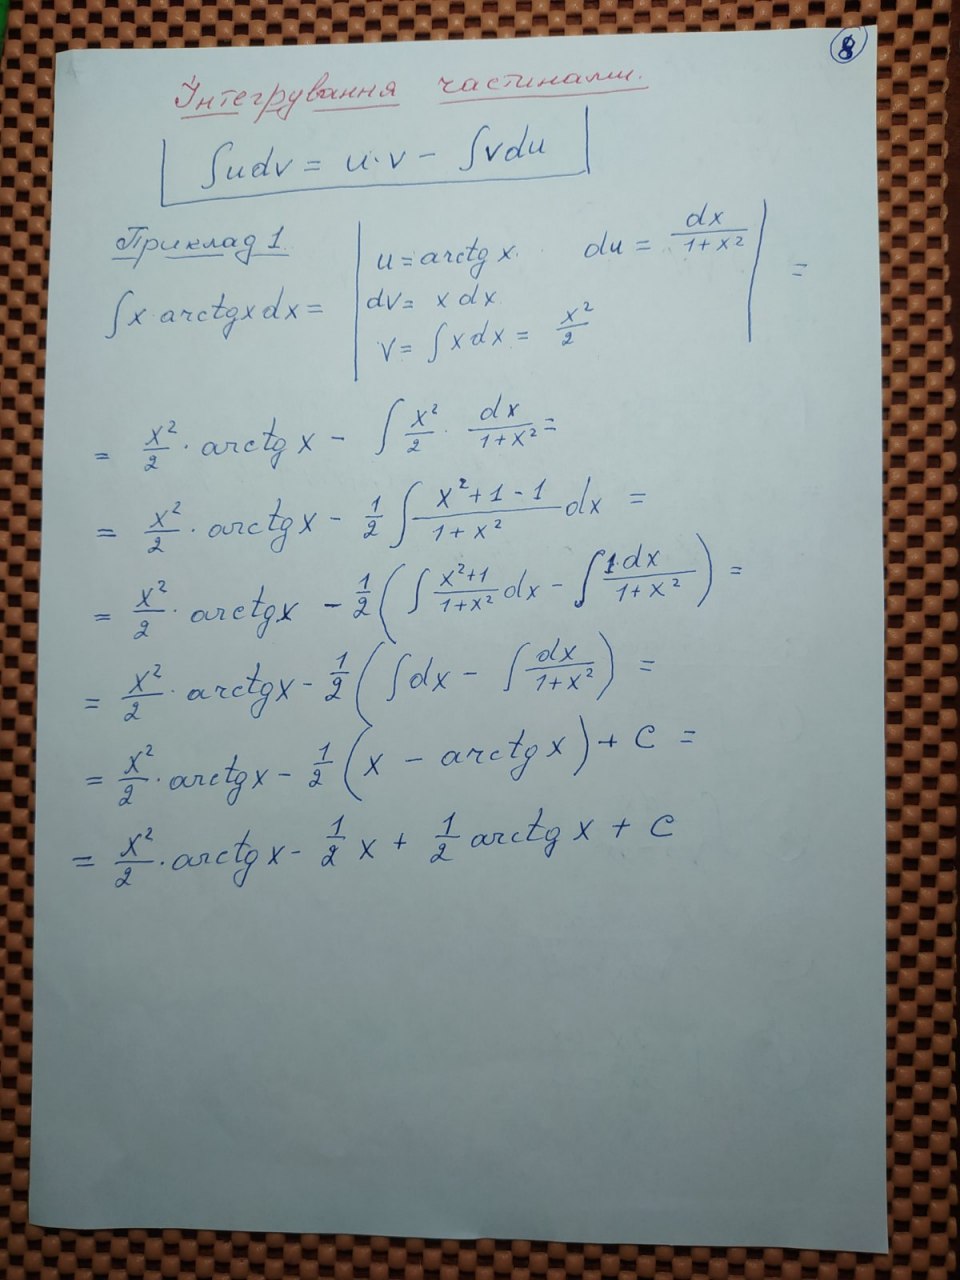 8
Інтегрування частинами.
∫udv = u·v - ∫vdu
Приклад 1.
∫x·arctgxdx = | u = arctg x. du = dx/(1+x²) | =
dv = x dx.
v = ∫xdx = x²/2
= x²/2 · arctg x - ∫ x²/2 · dx/(1+x²) =
= x²/2 · arctg x - 1/2 ∫ (x²+1-1)/(1+x²) dx =
= x²/2 · arctgx - 1/2 ( ∫ (x²+1)/(1+x²) dx - ∫ 1·dx/(1+x²) ) =
= x²/2 · arctgx - 1/2 ( ∫dx - ∫ dx/(1+x²) ) =
= x²/2 · arctgx - 1/2 ( x - arctg x ) + C =
= x²/2 · arctg x - 1/2 x + 1/2 arctg x + C